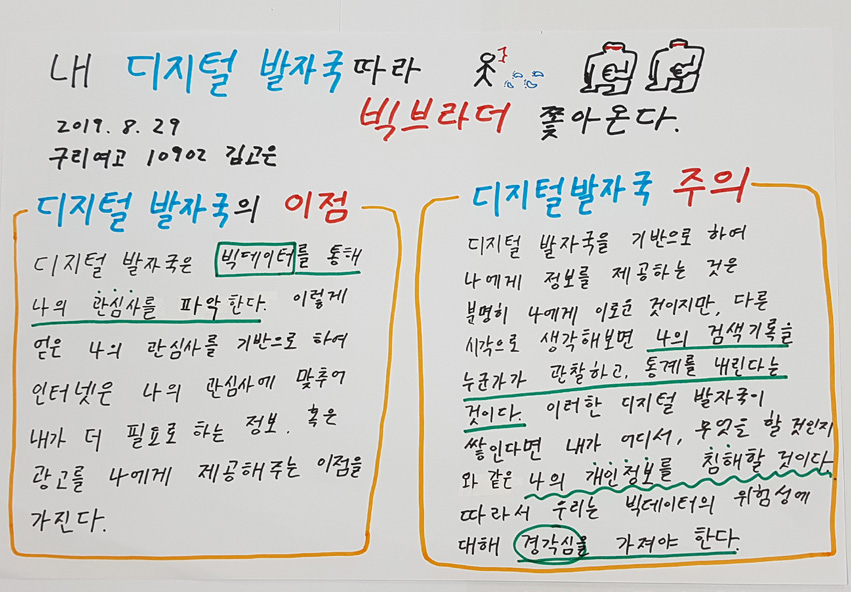 내 디지털 발자국 따라
빅브라더 쫓아온다.
2019. 8. 29
구리여고 10902 김고은
디지털 발자국의 이점
디지털 발자국은 빅데이터를 통해
나의 관심사를 파악한다. 이렇게
얻은 나의 관심사를 기반으로 하여
인터넷은 나의 관심사에 맞추어
내가 더 필요로 하는 정보. 혹은
광고를 나에게 제공해주는 이점을
가진다.
디지털발자국 주의
디지털 발자국을 기반으로 하여
나에게 정보를 제공하는 것은
분명히 나에게 이로운 것이지만, 다른
시각으로 생각해보면 나의 검색기록을
누군가가 관찰하고, 통계를 내린다는
것이다. 이러한 디지털 발자국이
쌓인다면 내가 어디서, 무엇을 할 것인지
와 같은 나의 개인정보를 침해할 것이다.
따라서 우리는 빅데이터의 위험성에
대해 경각심을 가져야 한다.